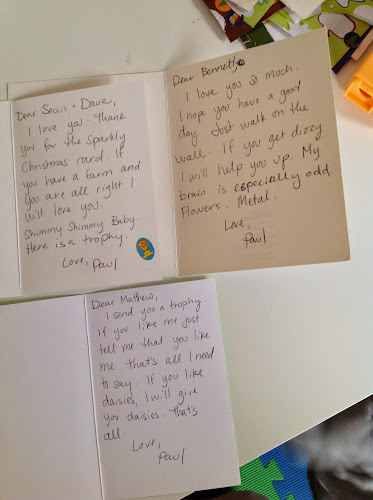 Dear Sean + Dave,
I love ya. Thank
you for the sparkly
Christmas card. If
you have a farm and
you are all right I
will love you.
Shimmy Shimmy Baby.
Here is a trophy.
Love,
Paul
Dear Bennett,
I love you so much.
I hope you have a good
day. Just walk on the
wall. If you get dizzy
I will help you up. My
brain is especially odd.
Flowers. Metal.
Love,
Paul
Dear Mathew,
I send you a trophy.
If you like me just
tell me that you like
me. That's all I need
to say. If you like
daisies, I will give
you daisies. That's
all.
Love,
Paul